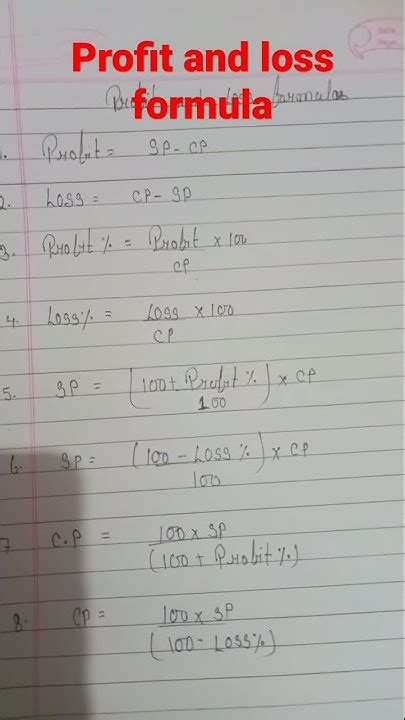 Profit and loss
formula
Profit and Loss formulas
1. Profit = SP - CP
2. Loss = CP - SP
3. Profit % = Profit × 100
CP
4. Loss% = Loss × 100
CP
5. SP = (100 + Profit %) × CP
100
6. SP = (100 - Loss %) × CP
100
7 C.P = 100 × SP
(100 + Profit %)
8. CP = 100 × SP
(100 - Loss%)